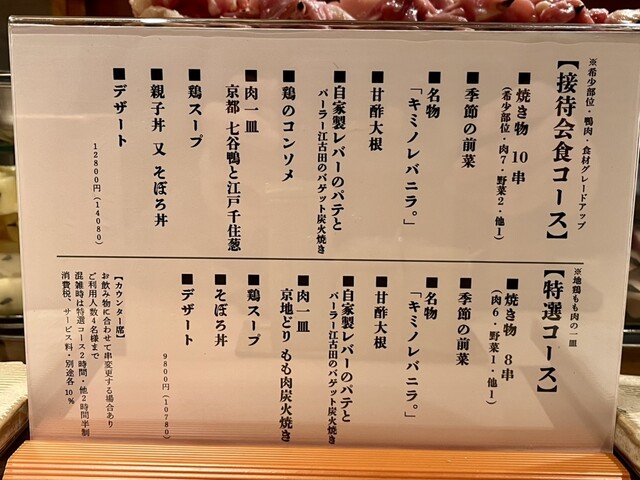 ※希少部位・鴨肉・食材グレードアップ
【接待会食コース】
■焼き物 10串
(希少部位・肉7・野菜2・他1)
■季節の前菜
■名物
「キミノレバニラ。」
■甘酢大根
■自家製レバーのパテと
パーラー江古田のバゲット炭火焼き
■鶏のコンソメ
■肉一皿
京都 七谷鴨と江戸千住葱
■鶏スープ
■親子丼 又 そぼろ丼
■デザート
12800円(14080)
※地鶏もも肉の一皿
【特選コース】
■焼き物 8串
(肉6・野菜1・他1)
■季節の前菜
■名物
「キミノレバニラ。」
■甘酢大根
■自家製レバーのパテと
パーラー江古田のバゲット炭火焼き
■肉一皿
京地どり もも肉炭火焼き
■鶏スープ
■そぼろ丼
■デザート
9800円(10780)
【カウンター席】
お飲み物に合わせて串変更する場合あり
ご利用人数4名様まで
混雑時は特選コース2時間・他2時間半制
消費税、サービス料・別途各10%